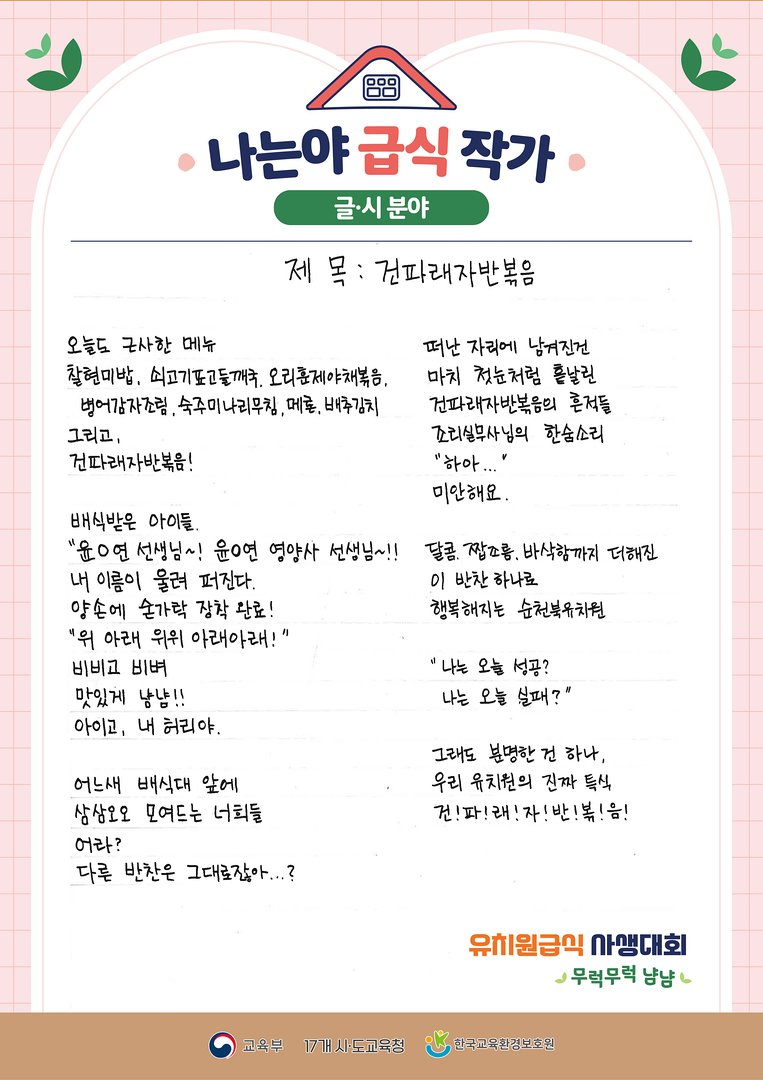 나는야 급식 작가
글·시 분야
제 목 : 건파래자반볶음
오늘도 근사한 메뉴
찰현미밥, 쇠고기표고들깨국, 오리훈제야채볶음,
병어감자조림, 숙주미나리무침, 메론, 배추김치
그리고,
건파래자반볶음!
배식받은 아이들.
"윤O연 선생님~! 윤O연 영양사 선생님~!!
내 이름이 울려 퍼진다.
양손에 숟가락 장착 완료!
"위 아래 위위 아래아래!"
비비고 비벼
맛있게 냠냠!!
아이고, 내 허리야.
어느새 배식대 앞에
삼삼오오 모여드는 너희들
어라?
다른 반찬은 그대로잖아...?
떠난 자리에 남겨진건
마치 첫눈처럼 흩날린
건파래자반볶음의 흔적들
조리실무사님의 한숨소리
"하아..."
미안해요.
달콤, 짭조롬, 바삭함까지 더해진
이 반찬 하나로
행복해지는 순천북유치원
"나는 오늘 성공?
나는 오늘 실패?"
그래도 분명한 건 하나,
우리 유치원의 진짜 특식
건!파!래!자!반!볶!음!
유치원급식 사생대회
무럭무럭 냠냠
교육부 17개 시·도교육청 한국교육환경보호원